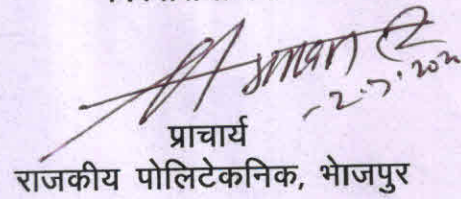 -2.7.202
प्राचार्य
राजकीय पोलिटेकनिक, भोजपुर